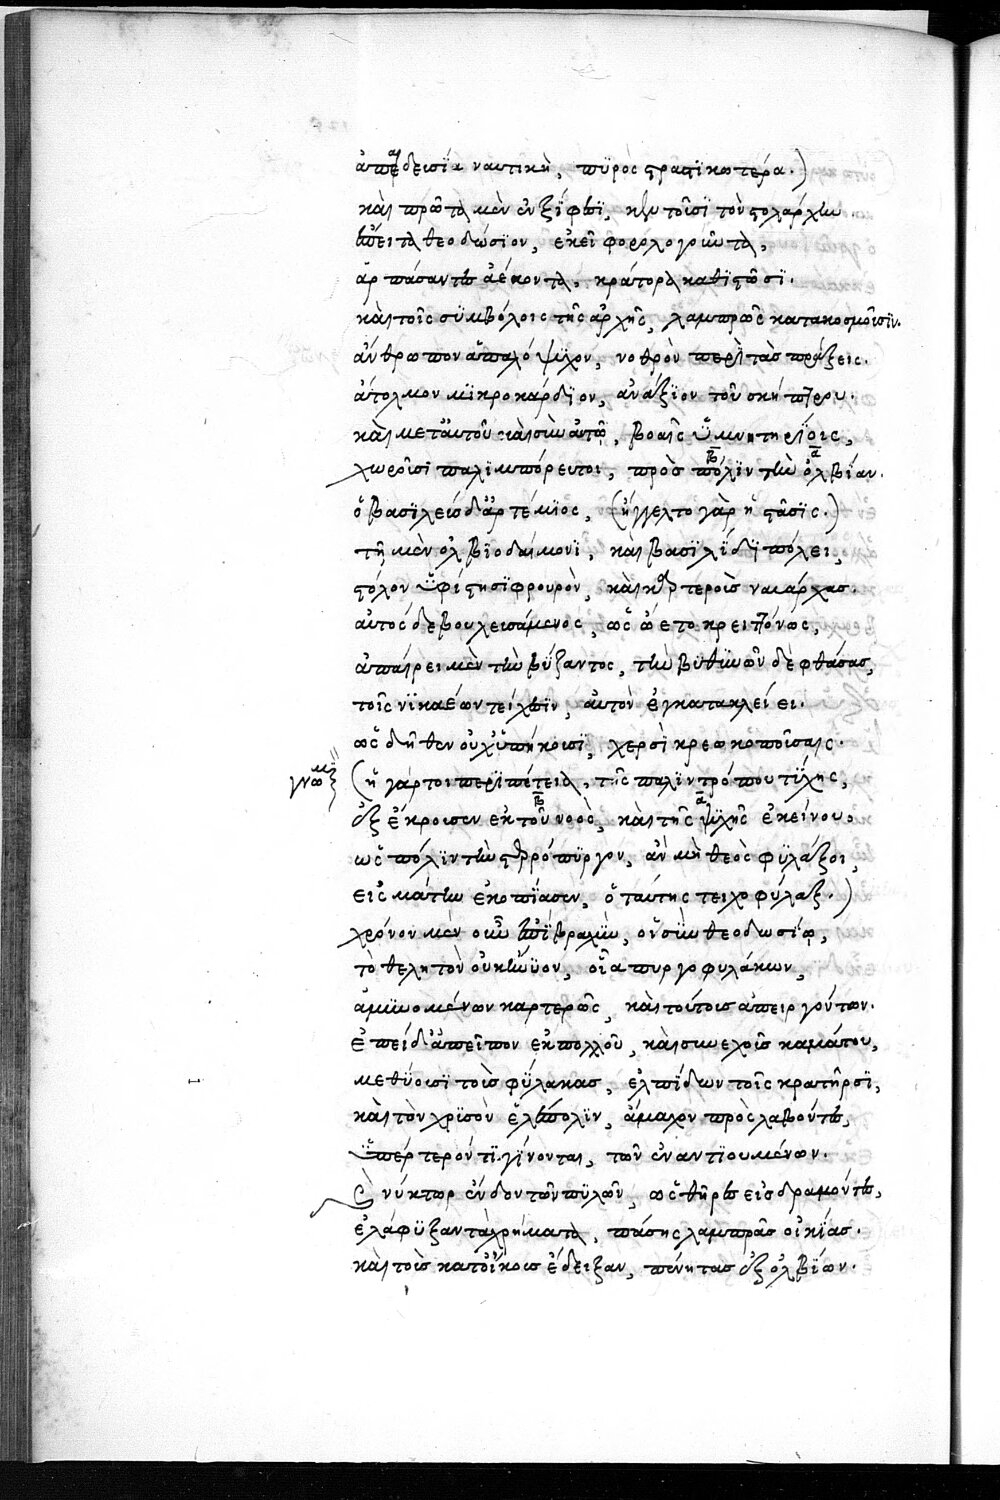 ἀπαιδευσία ναυτικὴ, πυρὸς δραστικωτέρα·)
καὶ πρῶτα μὲν ἐν ξίφεσϊ, κτείνουσϊ τὸν στολάρχην
ἔπειτα θεοδώσϊον, ἐκεῖ φορολογοῦντα,
ἁρπάσαντες ἀέκοντα, κράτορα καθϊστῶσϊ·
καὶ τοῖς συμβόλοις τῆς ἀρχῆς, λαμπρῶς κατακοσμοῦσϊν·
ἄνθρωπον ἁπαλόψϋχον, νοθρὸν περὶ τὰς πράξεις·
ἄτολμον μϊκροκάρδϊον, ἀνάξϊον τοῦ σκήπτρου·
καὶ μετ' αὐτοῦ καὶ σὺν αὐτῷ, βοαῖς ὑμνητηρίοις,
χωροῦσϊ παλίμπορευτοι, πρὸς πόλϊν τὴν ὀλβίαν·
ὁ βασϊλεὺς δ' ἀρτέμϊος, (ἤγγελτο γὰρ ἡ στάσϊς·)
τῇ μὲν ὀλβϊοδαίμονϊ, καὶ βασϊλίδϊ πόλει,
στόλον ὑφίστησϊ φρουρὸν, καὶ καρτεροὺς ναυάρχας·
αὐτὸς δὲ βουλευσάμενος, ὡς ᾤετο κρειττόνως,
ἀπαίρει μὲν τὴν βύζαντος, τὴν βϊθϋνῶν δὲ φθάσας,
τοῖς νϊκαέων τείχεσϊν, αὐτὸν ἐγκατακλείει·
ὡς δῆθεν οὐχ ὑπήκουσϊ, χερσὶ κρεωκοποῦσαις·
γνώμη (ἡ γάρ τοι περϊπέτεια, τῆς παλϊντρόπου τύχης,
ἐξέκρουσεν ἐκ τοῦ νοὸς, καὶ τῆς ψυχῆς ἐκείνου
ὡς πόλϊν τὴν στερρόπυργον, ἂν μὴ θεὸς φϋλάξοι,
εἰς μάτην ἐκοπίασεν, ὁ ταύτης τειχοφύλαξ·)
χρόνον μὲν οὖν ἐπὶ βραχὺν, οἱ σὺν θεοδωσίῳ,
τὸ θελητὸν οὐκ ἤνϋον, οἷα πυργοφυλάκων,
ἀμϋνομένων καρτερῶς, καὶ τούτους ἀπειργούντων·
ἐπεὶ δ' ἀπεῖπον ἐκ πολλοῦ, καὶ συνεχοῦς καμάτου,
μεθύουσϊ τοὺς φύλακας, ἐλπίδων τοῖς κρατῆρσϊ,
καὶ τὸν χρϋσὸν ἑλέπολϊν, ἄμαχον προσλαβόντες,
ὑπέρτεροντϊ γίνονται, τῶν ἐναντϊουμένων·
καὶ νύκτωρ ἔνδον τῶν πϋλῶν, ὡς θῆρες εἰσδραμόντες,
ἐλάφυξαν τὰ χρήματα, πάσης λαμπρᾶς οἰκίας·
καὶ τοὺς κατοίκους ἔδειξαν, πένητας ἐξ ὀλβίων·